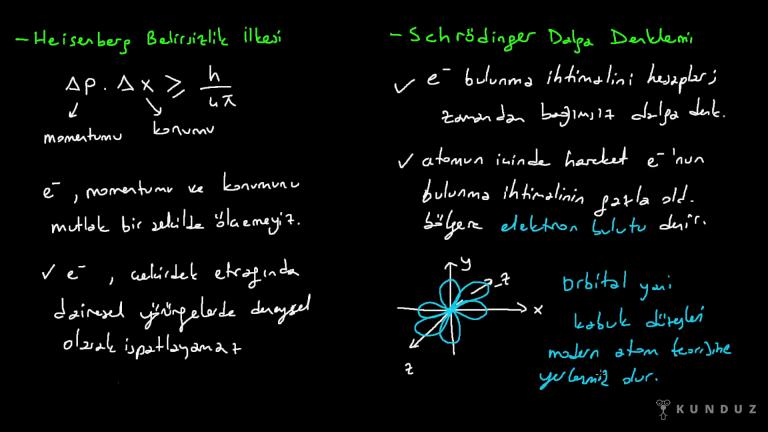 - Heisenberg Belirsizlik ilkesi
Δp . Δx ≥ h / 4π
momentumu konumu
e⁻, momentumu ve konumunu
mutlak bir şekilde ölçemeyiz.
✓ e⁻, çekirdek etrafında
dairesel yörüngelerde deneysel
olarak ispatlayamaz
- Schrödinger Dalga Denklemi
✓ e⁻ bulunma ihtimalini hesaplar;
zamandan bağımsız dalga denk.
✓ atomun içinde hareket e⁻'nun
bulunma ihtimalinin fazla old.
bölgere elektron bulutu denir.
y
z
x
z
Orbital yani
kabuk düzeyleri
modern atom teorisine
yerleşmiş olur.
KUNDUZ